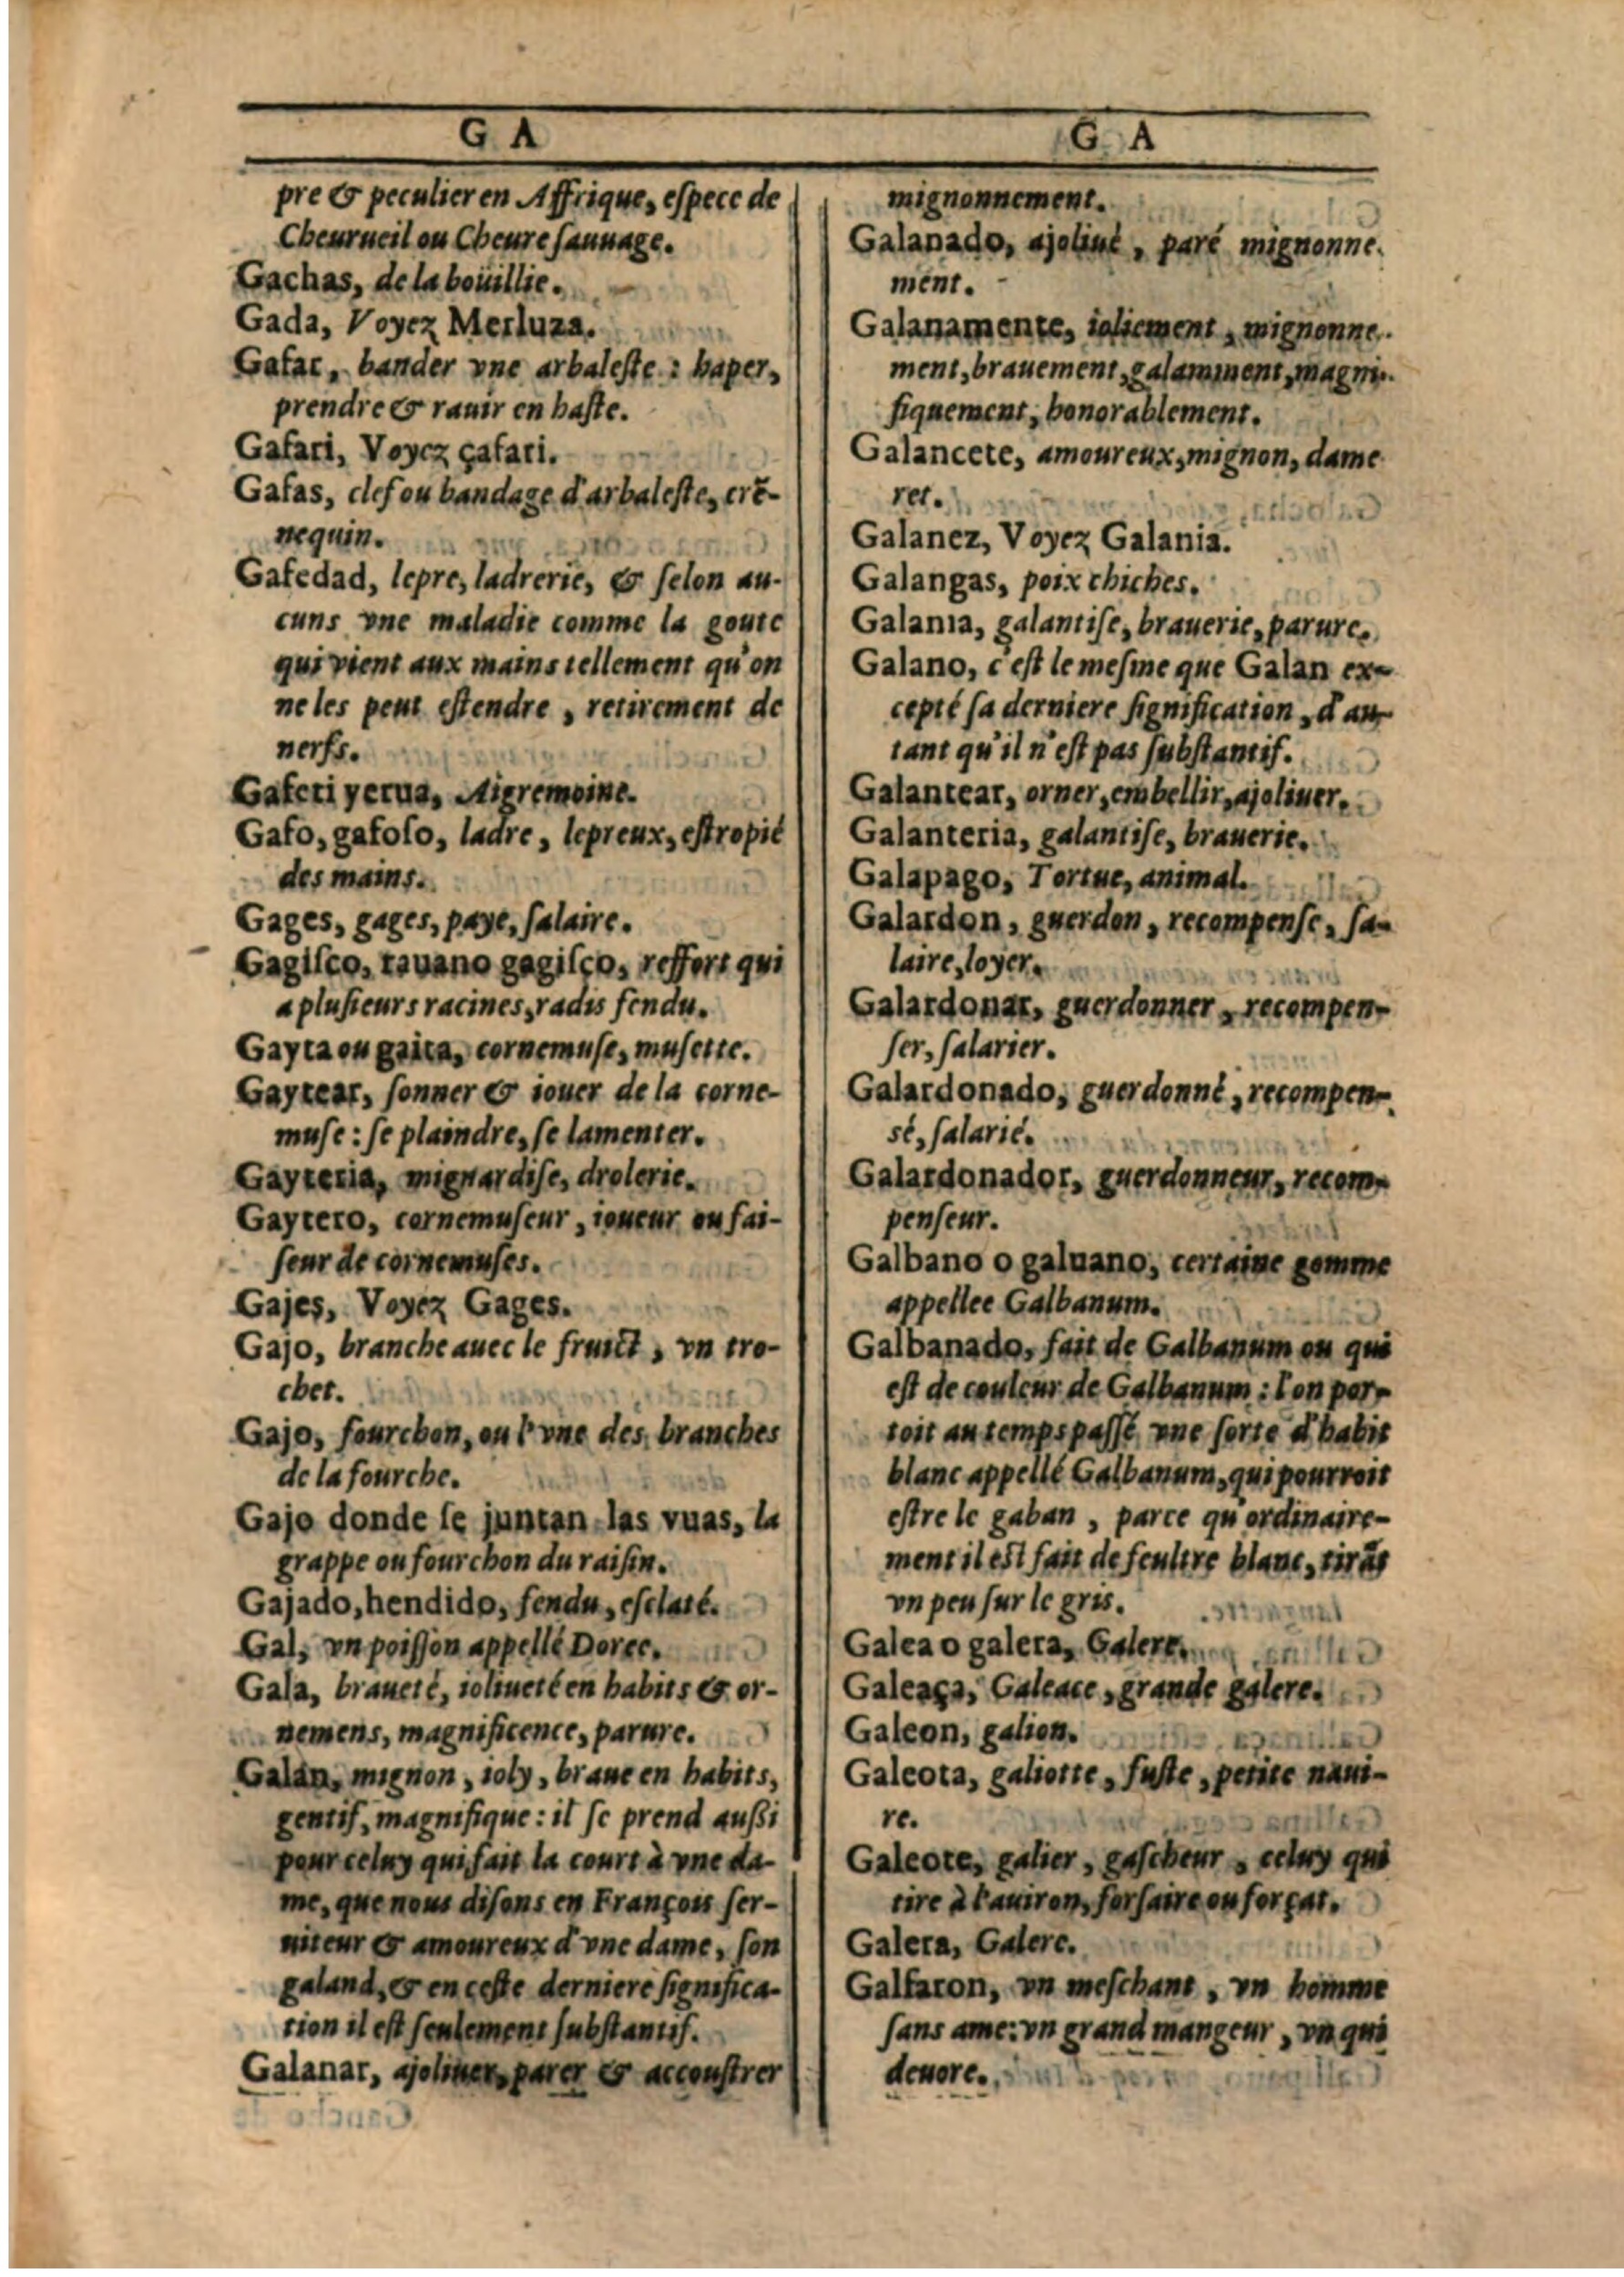 G A
pre & peculier en Affrique, eſpece de
Cheurueil ou Cheure ſauuage.
Gachas, de la boüillie.
Gada, Voyez Merluza.
Gafar, bander vne arbaleſte : haper,
prendre & rauir en haſte.
Gafari, Voyez çafari.
Gafas, clef ou bandage d'arbaleſte, crē-
nequin.
Gafedad, lepre, ladrerie, & ſelon au-
cuns vne maladie comme la goute
qui vient aux mains tellement qu'on
ne les peut eſtendre, retirement de
nerfs.
Gafeti yerua, Aigremoine.
Gafo, gafoſo, ladre, lepreux, eſtropié
des mains.
Gages, gages, paye, ſalaire.
Gagiſco, rauano gagiſco, reffort qui
a pluſieurs racines, radis fendu.
Gayta ou gaita, cornemuſe, muſette.
Gaytear, ſonner & iouer de la corne-
muſe : ſe plaindre, ſe lamenter.
Gayteria, mignardiſe, drolerie.
Gaytero, cornemuſeur, ioueur ou fai-
ſeur de cornemuſes.
Gajes, Voyez Gages.
Gajo, branche auec le fruict, vn tro-
chet.
Gajo, fourchon, ou l'vne des branches
de la fourche.
Gajo donde ſe juntan las vuas, la
grappe ou fourchon du raiſin.
Gajado, hendido, fendu, eſclaté.
Gal, vn poiſſon appellé Doree.
Gala, braueté, ioliueté en habits & or-
nemens, magnificence, parure.
Galan, mignon, ioly, braue en habits,
gentif, magnifique : il ſe prend außi
pour celuy qui fait la court à vne da-
me, que nous diſons en François ſer-
uiteur & amoureux d'vne dame, ſon
galand, & en ceſte derniere ſignifica-
tion il eſt ſeulement ſubſtantif.
Galanar, ajoliuer, parer & accouſtrer
G A
mignonnement.
Galanado, ajoliué, paré mignonne-
ment.
Galanamente, ioliement, mignonne-
ment, brauement, galamment, magni-
fiquement, honorablement.
Galancete, amoureux, mignon, dame
ret.
Galanez, Voyez Galania.
Galangas, poix chiches.
Galania, galantiſe, brauerie, parure.
Galano, c'eſt le meſme que Galan ex-
cepté ſa derniere ſignification, d'au-
tant qu'il n'eſt pas ſubſtantif.
Galantear, orner, embellir, ajoliuer.
Galanteria, galantiſe, brauerie.
Galapago, Tortue, animal.
Galardon, guerdon, recompenſe, ſa-
laire, loyer.
Galardonar, guerdonner, recompen-
ſer, ſalarier.
Galardonado, guerdonné, recompen-
sé, ſalarié.
Galardonador, guerdonneur, recom-
penſeur.
Galbano o galuano, certaine gomme
appellee Galbanum.
Galbanado, fait de Galbanum ou qui
eſt de couleur de Galbanum : l'on por-
toit au temps paſſé vne ſorte d'habit
blanc appellé Galbanum, qui pourroit
eſtre le gaban, parce qu'ordinaire-
ment il eſt fait de feultre blanc, tirāt
vn peu ſur le gris.
Galea o galera, Galere.
Galeaça, Galeace, grande galere.
Galeon, galion.
Galeota, galiotte, fuſte, petite naui-
re.
Galeote, galier, gaſcheur, celuy qui
tire à l'auiron, forſaire ou forçat.
Galera, Galere.
Galfaron, vn meſchant, vn homme
ſans ame : vn grand mangeur, vn qui
deuore.